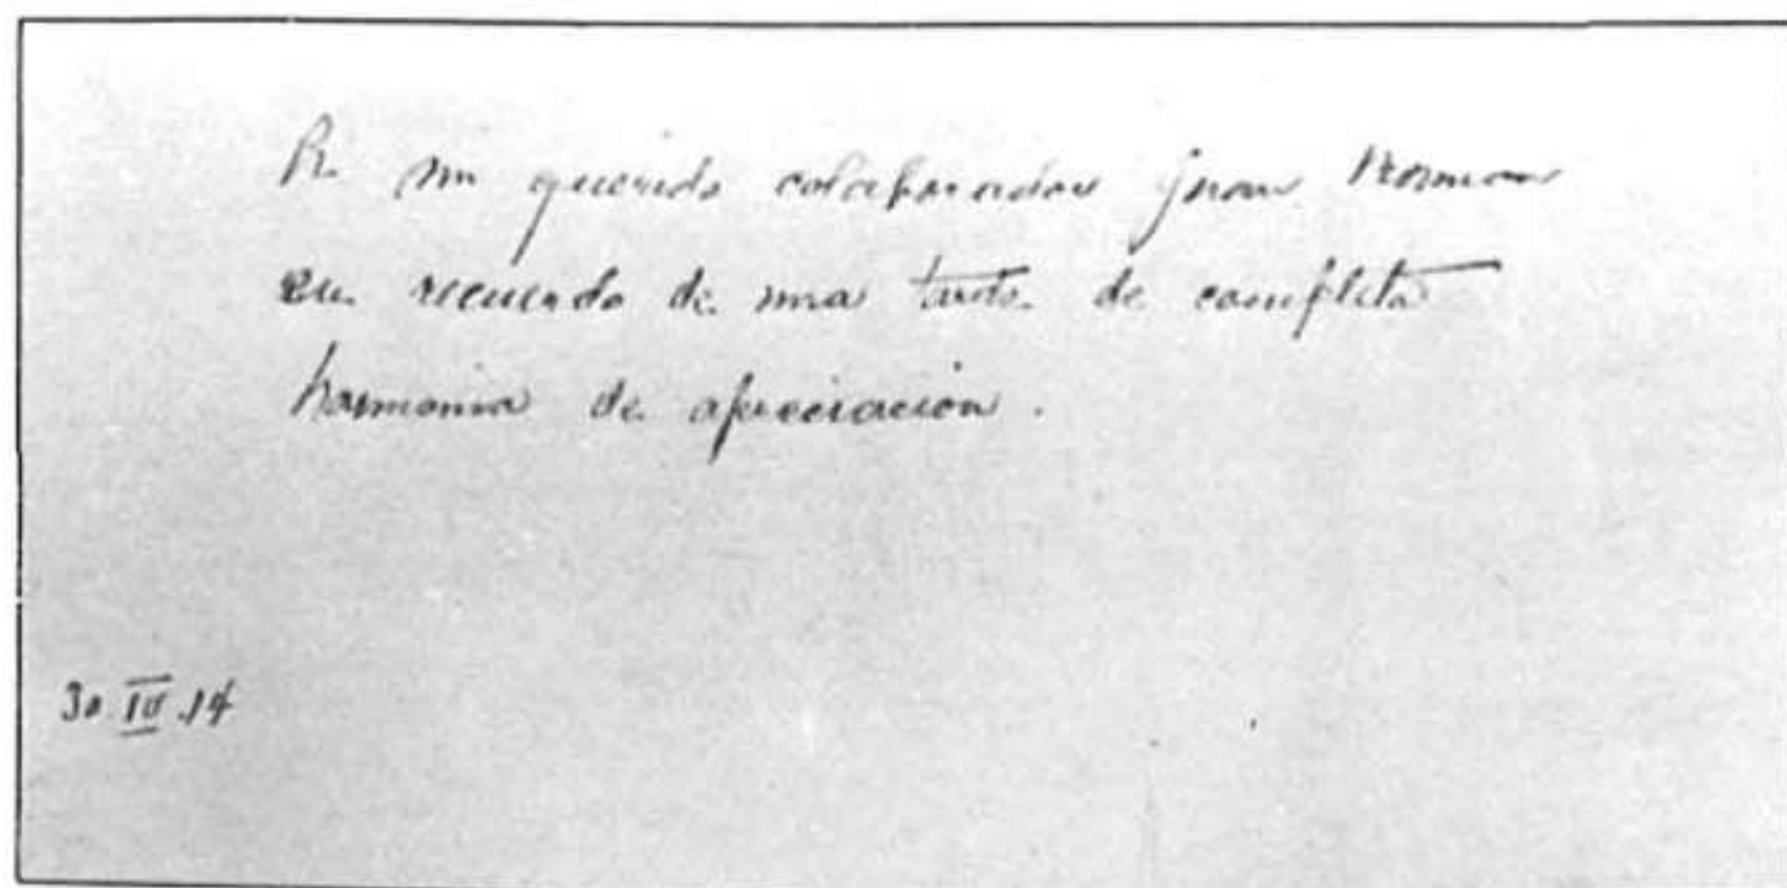 A mi querido colaborador Juan
en recuerdo de una tarde de completa
harmonia de apreciación.
30.IV.14